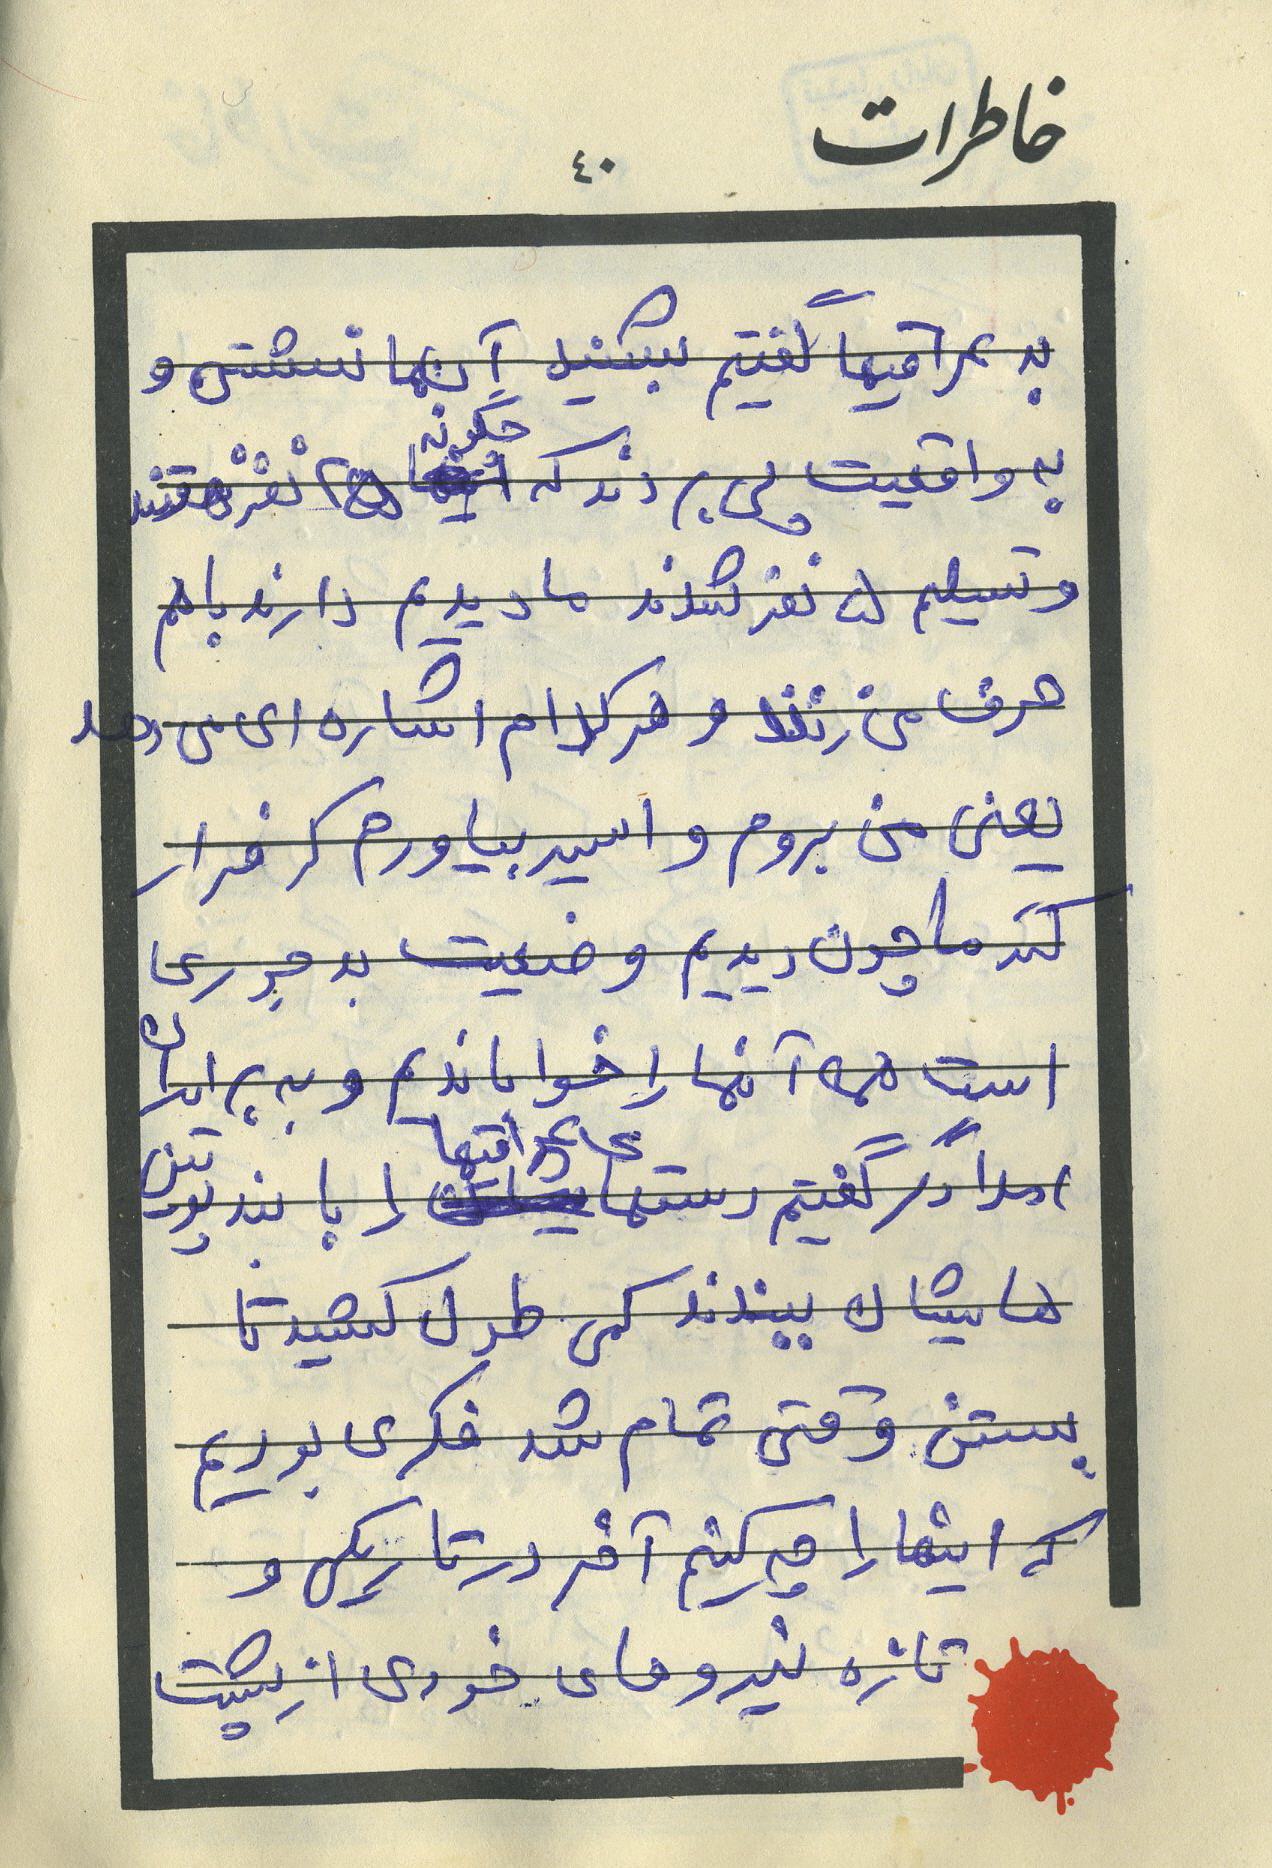 خاطرات
٤٠
به عراقیها گفتیم بشینید آن‌ها نشستن و
به واقعیت پی بردند که چگونه ۲۵ نفر هستند
و تسلیم ۵ نفر شدند ما دیدیم دارند باهم
حرف می زنند و هر کدام اشاره ای می دهد
یعنی من بروم و اسیر بیاورم کر فرار
کند ما چون دیدیم وضعیت بد جوری
است همه آنها را خواباندیم و به برادران
امدادگر گفتیم دستهای عراقیها را با بند پوتین
هایشان ببندند کمی طول کشید تا
بستن وقتی تمام شد فکری بودیم
که اینها را چه کنیم آخر در تاریکی و
تازه نیروهای خودی از پشت